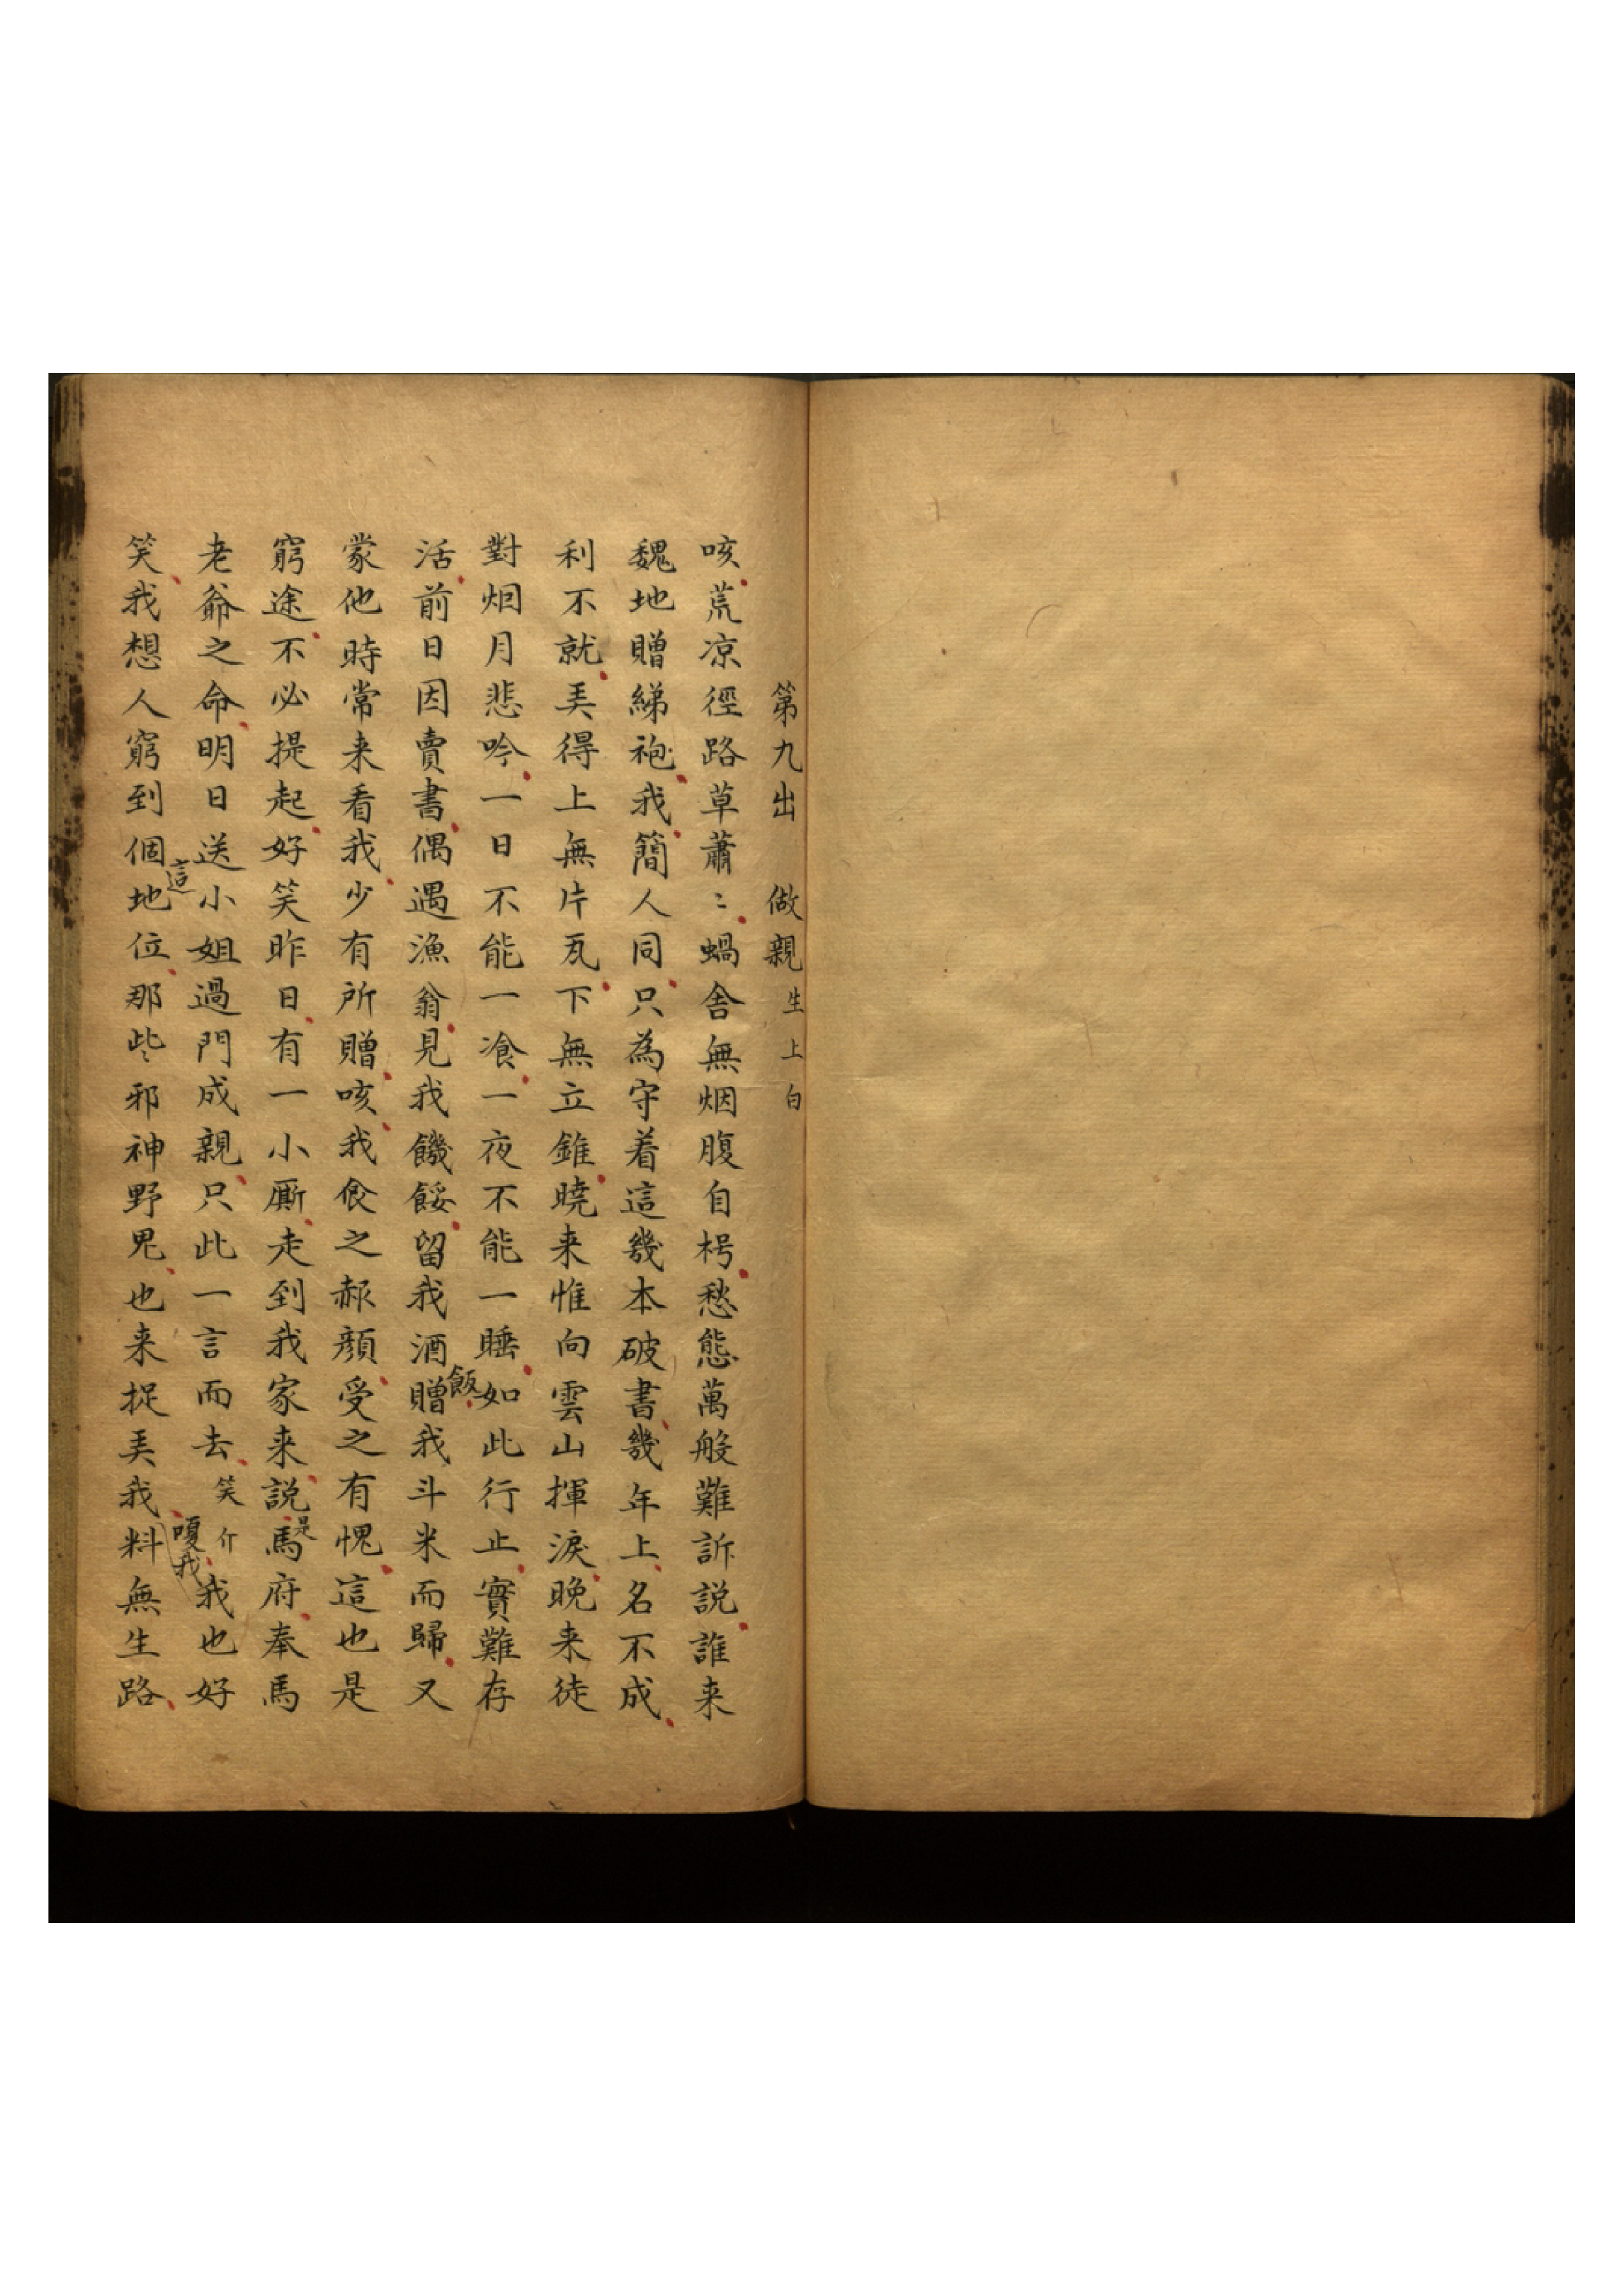 第九出　做親生上白
咳荒凉徑路草蕭〻蝸舍無烟腹自枵愁態萬般難訴説誰来
魏地贈綈袍我簡人同只為守着這幾本破書幾年上名不成
利不就美得上無片瓦下無立錐曉来惟向雲山揮淚晚来徒
對烟月悲吟一日不能一飡一夜不能一睡如此行止實難存
活前日因賣書偶遇漁翁見我饑餒留我酒飯贈我斗米而歸又
蒙他時常来看我少有所贈咳我食之赧顏受之有愧這也是
窮途不必提起好笑昨日有一小厮走到我家来説是馬府奉馬
老爺之命明日送小姐過門成親只此一言而去笑介嗄我我也好
笑我想人窮到這個地位那些〻邪神野鬼也来捉弄我料無生路